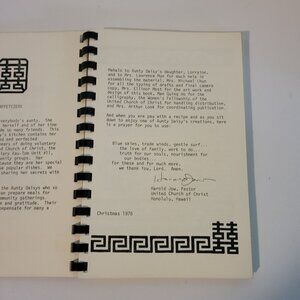 APPETIZERS
everybody's aunty. She
herself and of her time
in many friends. This
kitchen contains her
of doing voluntary
Church of Christ, the
family groups. Her
they are her special
dishes. We
sharing her secrets with
the Aunty Daisys who so
prepare meals for
community gatherings.
and gratitude. Their
compensate for many a
Mahalo to Aunty Daisy's daughter, Lorraine,
and to Mrs. Lawrence Mun for much help in
assembling the material, Mrs. Michael Chun
for all the typing of drafts and final camera
copy, Mrs. Ellinor Mast for the art work and
design of this book, Man Quing Au for the
calligraphy, the Women's Fellowship of the
United Church of Christ for handling distribution,
and Mrs. Arthur Look for coordinating publication.
And when you are with a recipe and as you sit
down to enjoy one of Aunty Daisy's creations, here
is a prayer for you to use:
Blue skies, trade winds, gentle surf...
the love of family, work to do,
truth for our souls, nourishment for
our bodies...
for these and for much more,
we thank You, Lord. Amen.
Harold Jow, Pastor
United Church of Christ
Honolulu, Hawaii
Christmas 1976